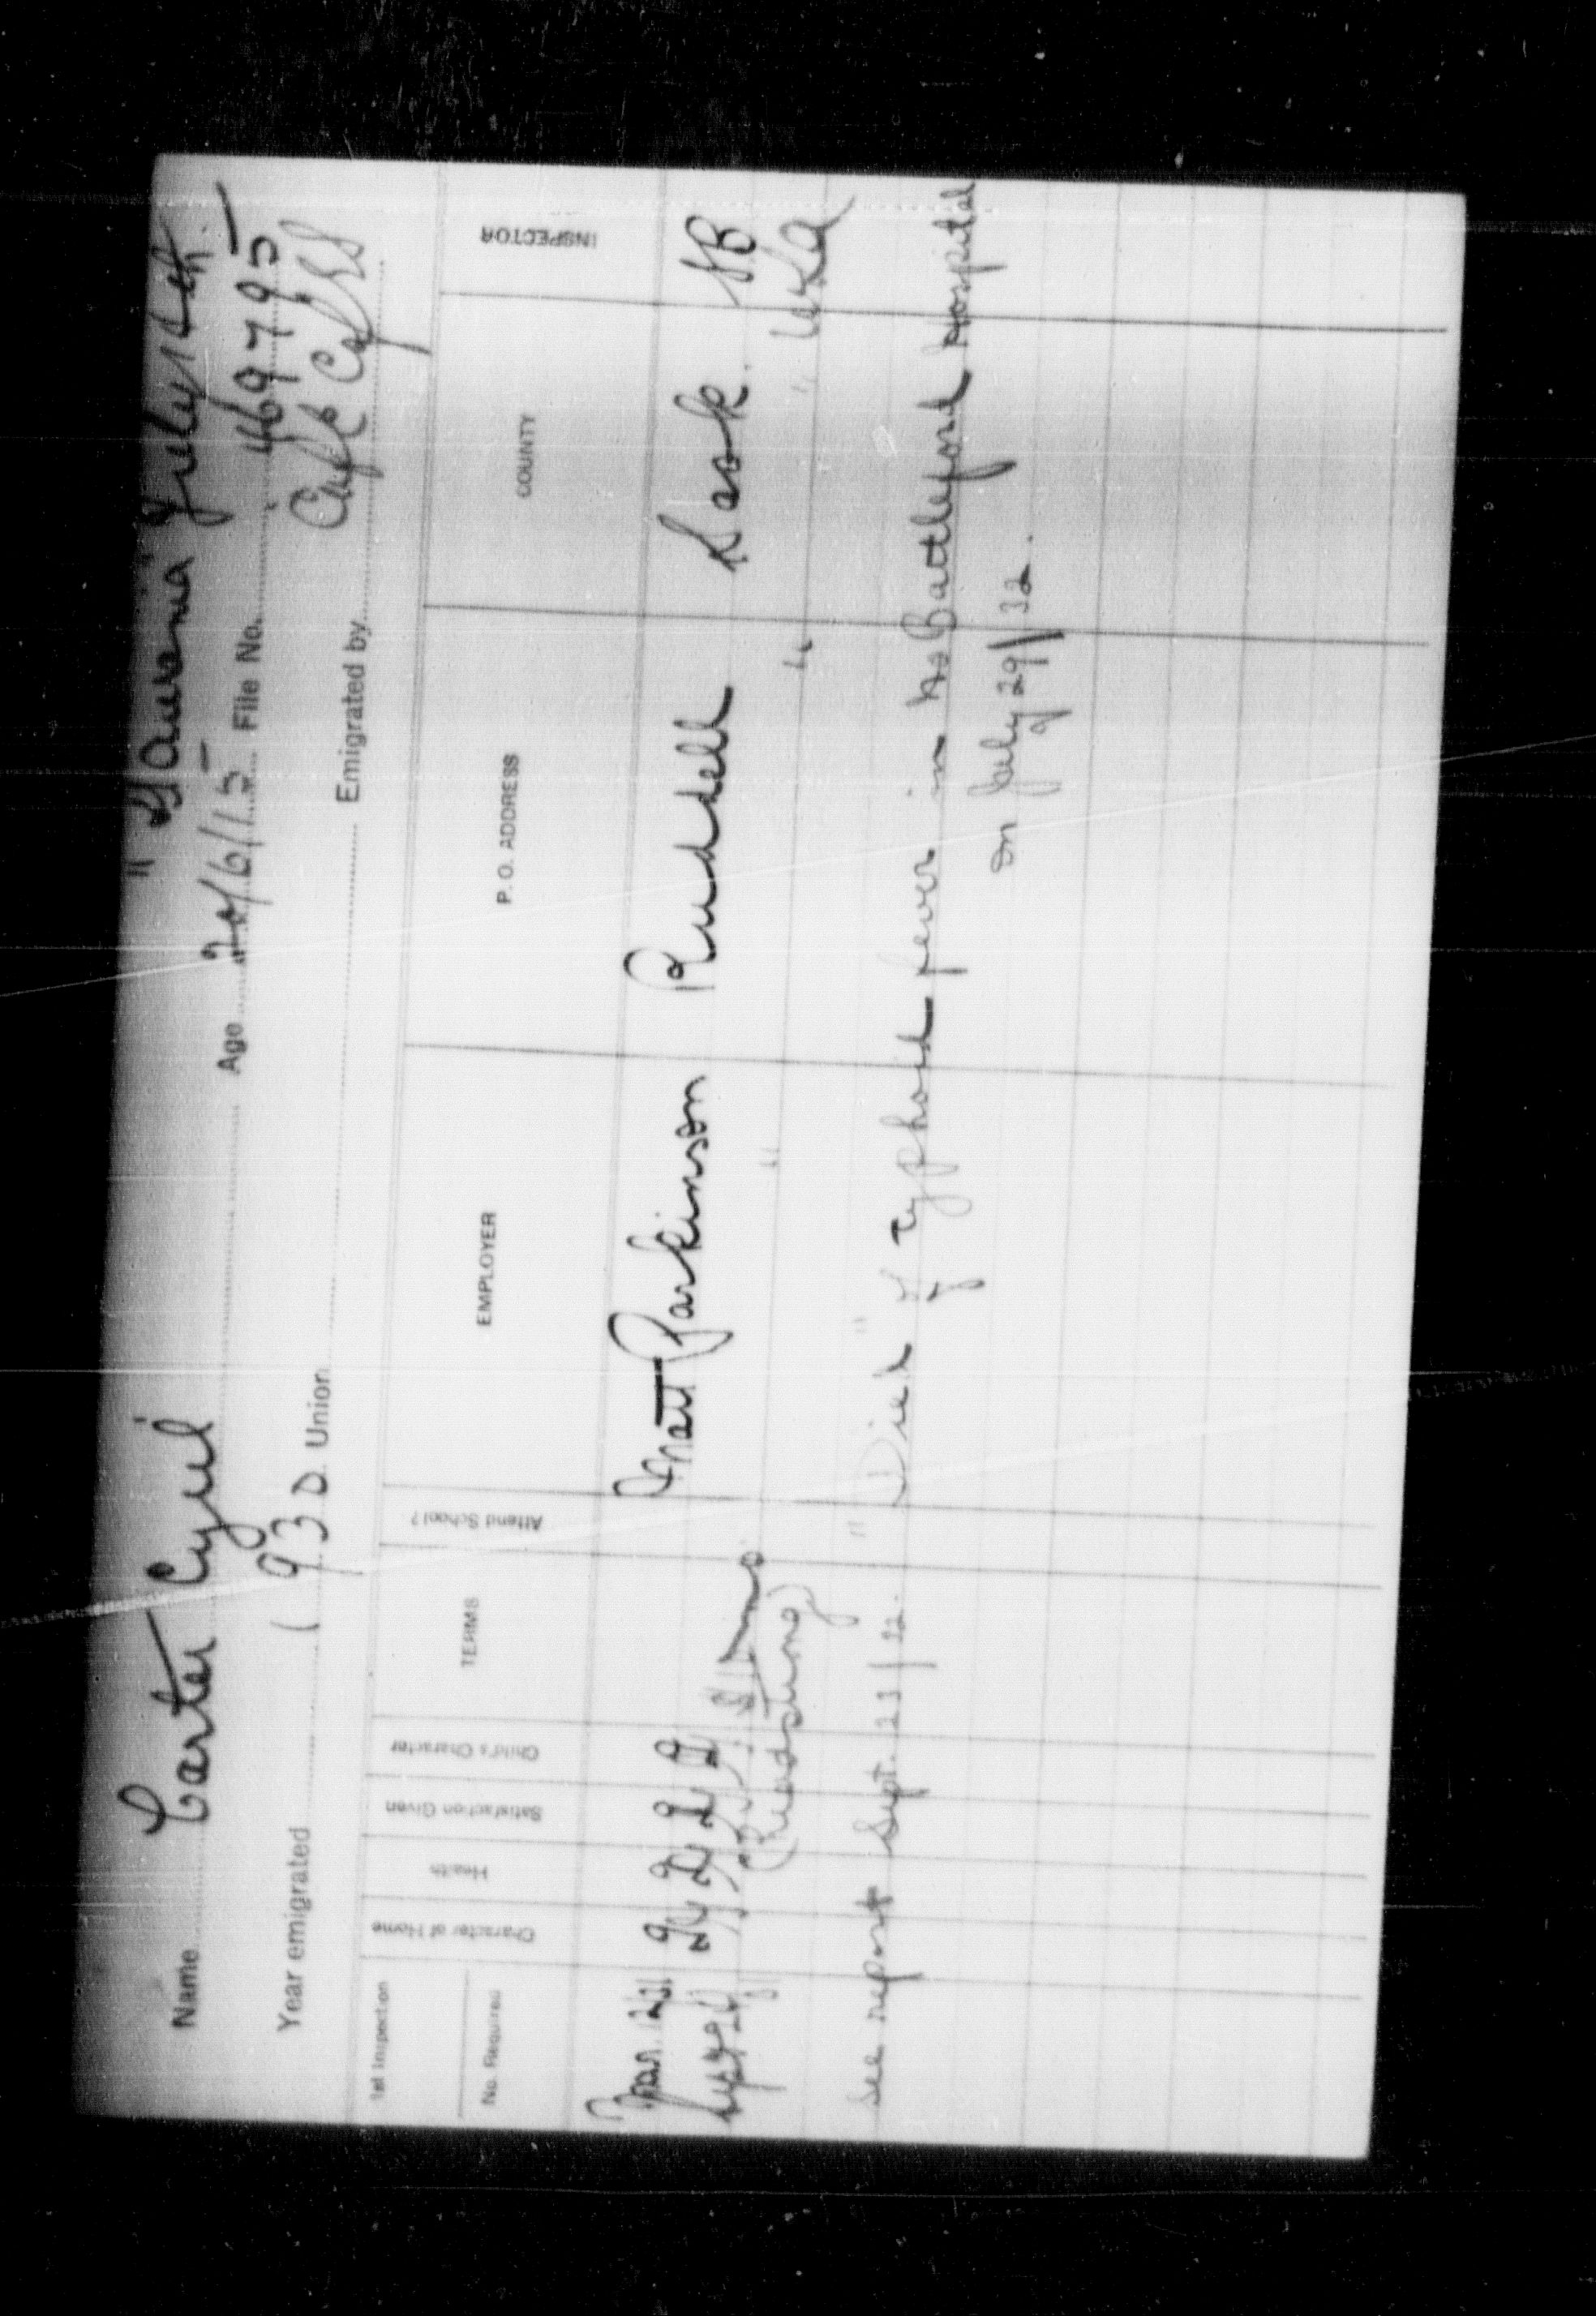 "Ausonia" July 4th
Name Carter Cyril Age 20/6/15 File No. 469795
Year emigrated 1930 Union Emigrated by
1st Inspection
No. Required Character of Home Health Satisfaction Given Child's Character TERMS Attend School? EMPLOYER P. O. ADDRESS COUNTY INSPECTOR
Mar. Matt Parkinson Ruddell Sask.
" " "
see report Sept. 23/32. "Died" of typhoid fever in No Battleford Hospital
on July 29/32.